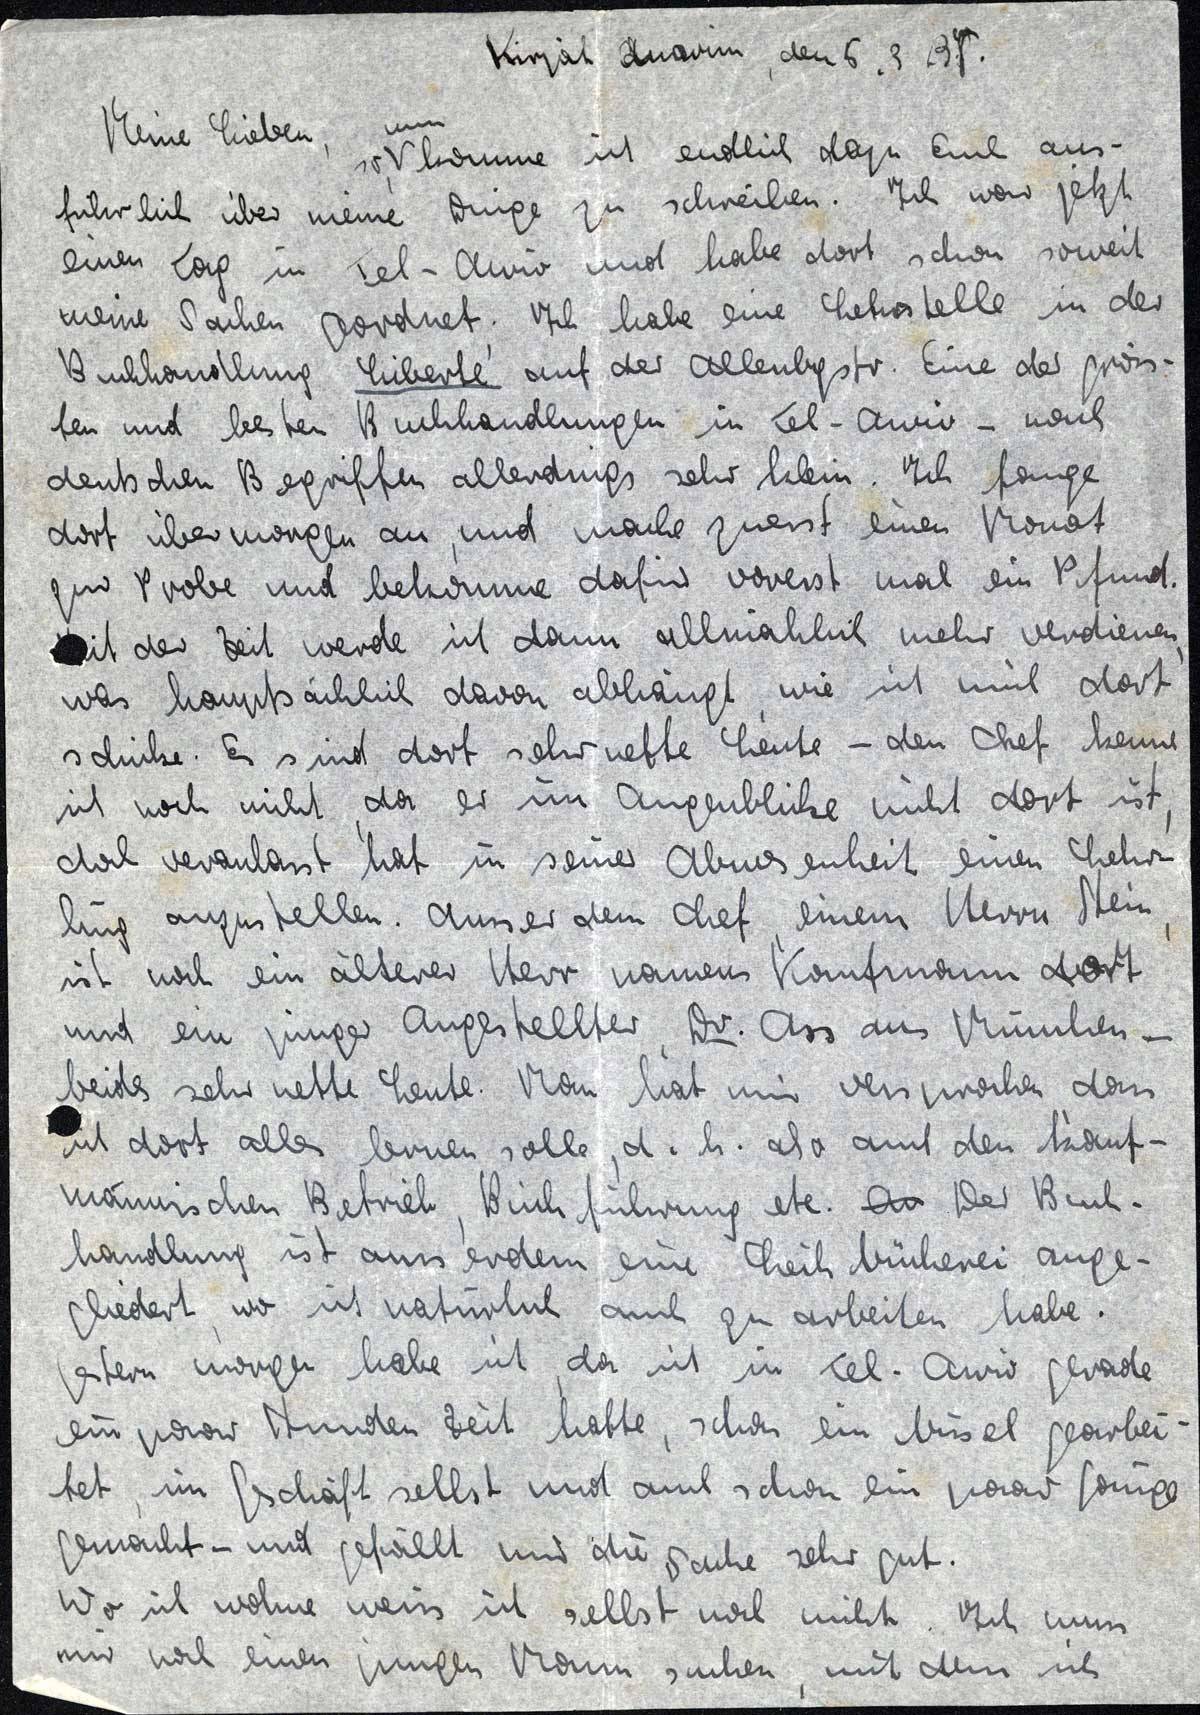 Kirjat Anavim, den 6.3.37.
Meine Lieben,
so, nun komme ich endlich dazu Euch aus-
führlich über meine Dinge zu schreiben. Ich war jetzt
einen Tag in Tel-Awiv und habe dort schon soweit
meine Sachen geordnet. Ich habe eine Lehrstelle in der
Buchhandlung "Liberté" auf der Allenbystr. Eine der gröss-
ten und besten Buchhandlungen in Tel-Awiv – nach
deutschen Begriffen allerdings sehr klein. Ich fange
dort übermorgen an, und mache zuerst einen Monat
zur Probe und bekomme dafür vorerst mal ein Pfund.
Mit der Zeit werde ich dann allmählich mehr verdienen,
was hauptsächlich davon abhängt, wie ich mich dort
schicke. Es sind dort sehr nette Leute – den Chef kenne
ich noch nicht, da er im Augenblicke nicht dort ist,
doch veranlasst hat in seiner Abwesenheit einen Lehr-
ling anzustellen. Ausser dem Chef, einem Herrn Stein,
ist noch ein älterer Herr namens Kaufmann dort
und ein junger Angestellter, Dr. Ass aus München –
beides sehr nette Leute. Man hat mir versprochen dass
ich dort alles lernen solle, d.h. also auch den kauf-
männischen Betrieb, Buchführung etc. Der Buch-
handlung ist ausserdem eine Leihbücherei ange-
gliedert, wo ich natürlich auch zu arbeiten habe.
Gestern morgen habe ich, da ich in Tel-Awiv gerade
ein paar Stunden Zeit hatte, schon ein bissel gearbei-
tet, im Geschäft selbst und auch schon ein paar Gänge
gemacht – und gefällt mir die Sache sehr gut.
Wo ich wohne weiss ich selbst noch nicht. Ich muss
mir noch einen jungen Mann suchen, mit dem ich